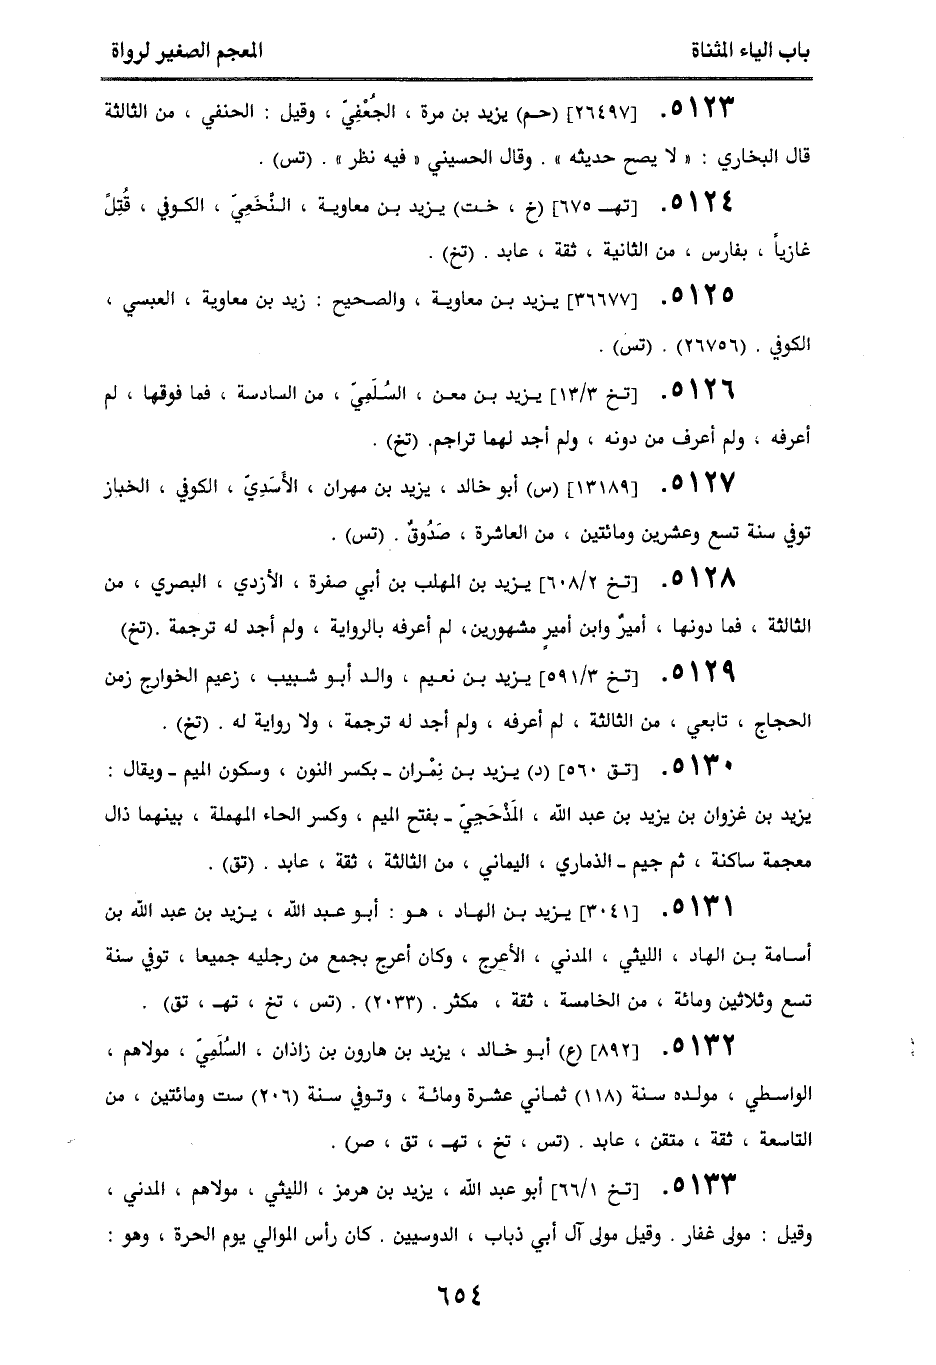 باب الياء المثناة
المعجم الصغير لرواة
٥١٢٣. [٢٦٤٩٧] (حـم) يزيد بن مرة ، الجُعْفِيّ ، وقيل : الحنفي ، من الثالثة
قال البخاري : « لا يصح حديثه » . وقال الحسيني « فيه نظر » . (تس) .
٥١٢٤. [تهـ ٦٧٥] (خ ، خـت) يـزيـد بـن معاويـة ، النَّخَعِيّ ، الكـوفي ، قُتِلَ
غازياً ، بفارس ، من الثانية ، ثقة ، عابد . (تخ) .
٥١٢٥. [٣٦٦٧٧] يـزيد بـن معاويـة ، والصـحيح : زيد بن معاوية ، العبسي ،
الكوفي . (٢٦٧٥٦) . (تس) .
٥١٢٦. [تـخ ١٣/٣] يـزيد بـن معـن ، السُّلَمِيّ ، من السادسة ، فما فوقها ، لم
أعرفه ، ولم أعرف من دونه ، ولم أجد لهما تراجم. (تخ) .
٥١٢٧. [١٣١٨٩] (س) أبو خالد ، يزيد بن مهران ، الأَسَدِيّ ، الكوفي ، الخباز
توفي سنة تسع وعشرين ومائتين ، من العاشرة ، صَدُوقٌ . (تس) .
٥١٢٨. [تـخ ٦٠٨/٢] يـزيد بن المهلب بن أبي صفرة ، الأزدي ، البصري ، من
الثالثة ، فما دونها ، أميرٌ وابن أميرٍ مشهورين، لم أعرفه بالرواية ، ولم أجد له ترجمة .(تخ)
٥١٢٩. [تـخ ٥٩١/٣] يـزيد بـن نعـيم ، والـد أبـو شـبيب ، زعيم الخوارج زمن
الحجاج ، تابعي ، من الثالثة ، لم أعرفه ، ولم أجد له ترجمة ، ولا رواية له . (تخ) .
٥١٣٠. [تـق ٥٦٠] (د) يـزيد بـن نِمْران ـ بكسر النون ، وسكون الميم ـ ويقال :
يزيد بن غزوان بن يزيد بن عبد الله ، المَذْحَجِيّ ـ بفتح الميم ، وكسر الحاء المهملة ، بينهما ذال
معجمة ساكنة ، ثم جيم ـ الذماري ، اليماني ، من الثالثة ، ثقة ، عابد . (تق) .
٥١٣١. [٣٠٤١] يـزيد بـن الهـاد ، هـو : أبـو عـبد الله ، يـزيد بن عبد الله بن
أسـامة بـن الهاد ، الليثي ، المدني ، الأعرج ، وكان أعرج بجمع من رجليه جميعا ، توفي سنة
تسع وثلاثين ومائة ، من الخامسة ، ثقة ، مكثر . (٢٠٣٣) . (تس ، تخ ، تهـ ، تق) .
٥١٣٢. [٨٩٢] (ع) أبـو خـالد ، يزيد بن هارون بن زاذان ، السُّلَمِيّ ، مولاهم ،
الواسـطي ، مولده سـنة (١١٨) ثمـاني عشـرة ومائـة ، وتـوفي سـنة (٢٠٦) ست ومائتين ، من
التاسعة ، ثقة ، متقن ، عابد . (تس ، تخ ، تهـ ، تق ، صر) .
٥١٣٣. [تـخ ٦٦/١] أبو عبد الله ، يزيد بن هرمز ، الليثي ، مولاهم ، المدني ،
وقيل : مولى غفار . وقيل مولى آل أبي ذباب ، الدوسيين . كان رأس الموالي يوم الحرة ، وهو :
٦٥٤